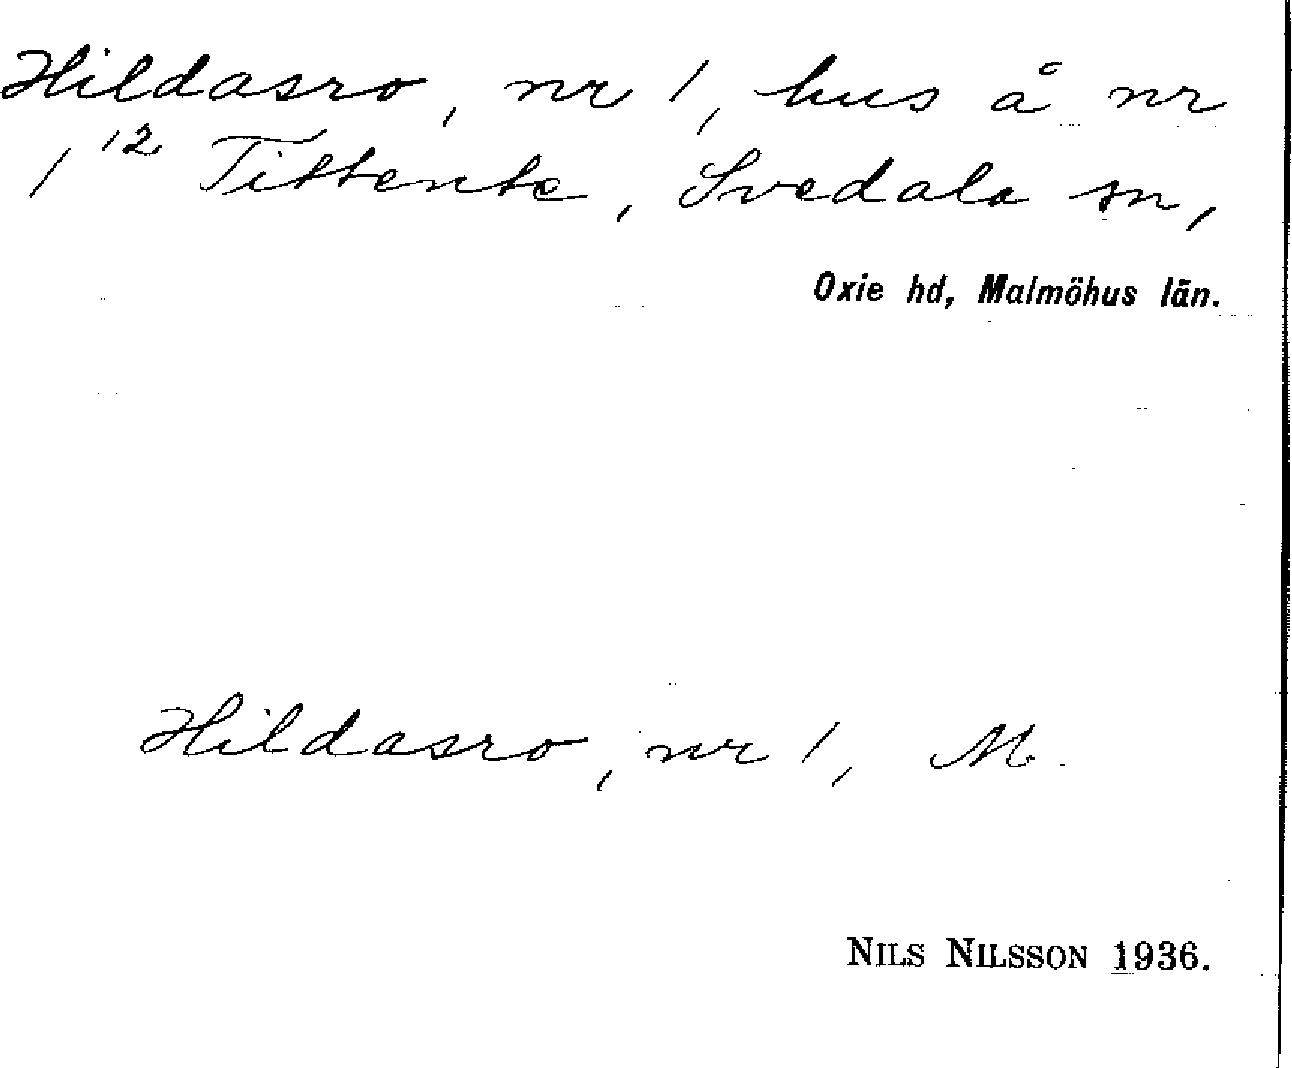 Hildasro, nr 1, hus å nr
1¹² Tittente, Svedala sn,
Oxie hd, Malmöhus län.
Hildasro, nr 1, M.
NILS NILSSON 1936.